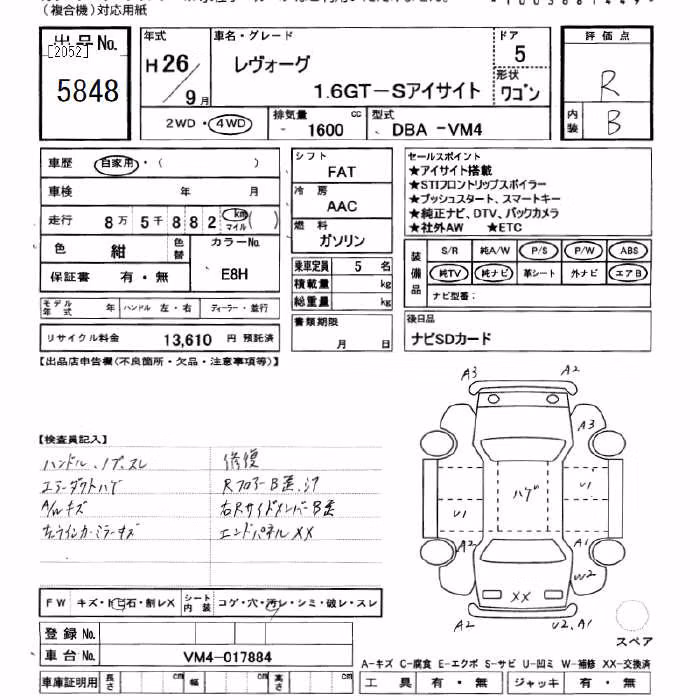 (複合機)対応用紙
出品No. 年式 車名・グレード ドア 評価点
[2052] H26 レヴォーグ 5 R
5848 9月 1.6GT-Sアイサイト 形状 ワゴン 内装 B
2WD・4WD 排気量 1600 cc 型式 DBA -VM4
車歴 自家用・( )
車検 年 月
走行 8万5千882 km マイル ( )
色 紺 色替 カラーNo. E8H
保証書 有・無
モデル年式 年 ハンドル 左・右 ディーラー・並行
リサイクル料金 13,610 円 預託済
シフト FAT
冷房 AAC
燃料 ガソリン
乗車定員 5 名
積載量 kg
総重量 kg
書類期限 月 日
セールスポイント
★アイサイト搭載
★STIフロントリップスポイラー
★プッシュスタート、スマートキー
★純正ナビ、DTV、バックカメラ
★社外AW ★ETC
装備品 S/R 純A/W P/S P/W ABS
純TV 純ナビ 革シート 外ナビ エアB
ナビ型番:
後日品
ナビSDカード
【出品店申告欄(不良箇所・欠品・注意事項等)】
【検査員記入】
ハンドル、ノブ、スレ 修復
エラーダクトハゲ RフロアーB歪、シワ
A/Wキズ 右RサイドメンバーB歪
左ウィンカーミラーキズ エンドパネルXX
A3 A2
A3
ハゲ U1
U1
A2 A1
W2
XX
A2 U2、A1
スペア
FW キズ・トビ石・割レX シート内装 コゲ・穴・汚レ・シミ・破レ・スレ
登録No.
車台No. VM4-017884
A-キズ C-腐食 E-エクボ S-サビ U-凹ミ W-補修 XX-交換済
車庫証明用 長さ cm 幅 cm 高さ cm 工具 有・無 ジャッキ 有・無